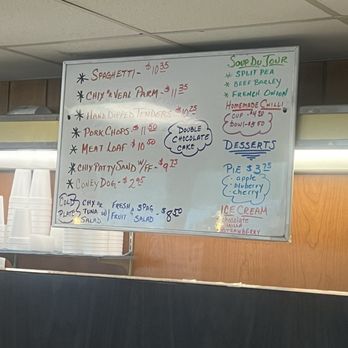 * SPAGHETTI - $10.35
* CHIX & VEAL PARM - $11.35
* HAND DIPPED TENDERS $10.25
* PORK CHOPS - $11.50
* MEAT LOAF - $10.50
* CHIX PATTY SAND W/FF - $9.25
* CONEY DOG - $2.95
COLD PLATES
CHX OR TUNA SALAD W/ FRESH FRUIT SPAG SALAD - $8.50
DOUBLE CHOCOLATE CAKE
SOUP DU JOUR
* SPLIT PEA
* BEEF BARLEY
* FRENCH ONION
HOMEMADE CHILLI
CUP
BOWL
DESSERTS
PIE $3.75
• apple
• blueberry
• cherry
ICE CREAM
chocolate
vanilla
STRAWBERRY